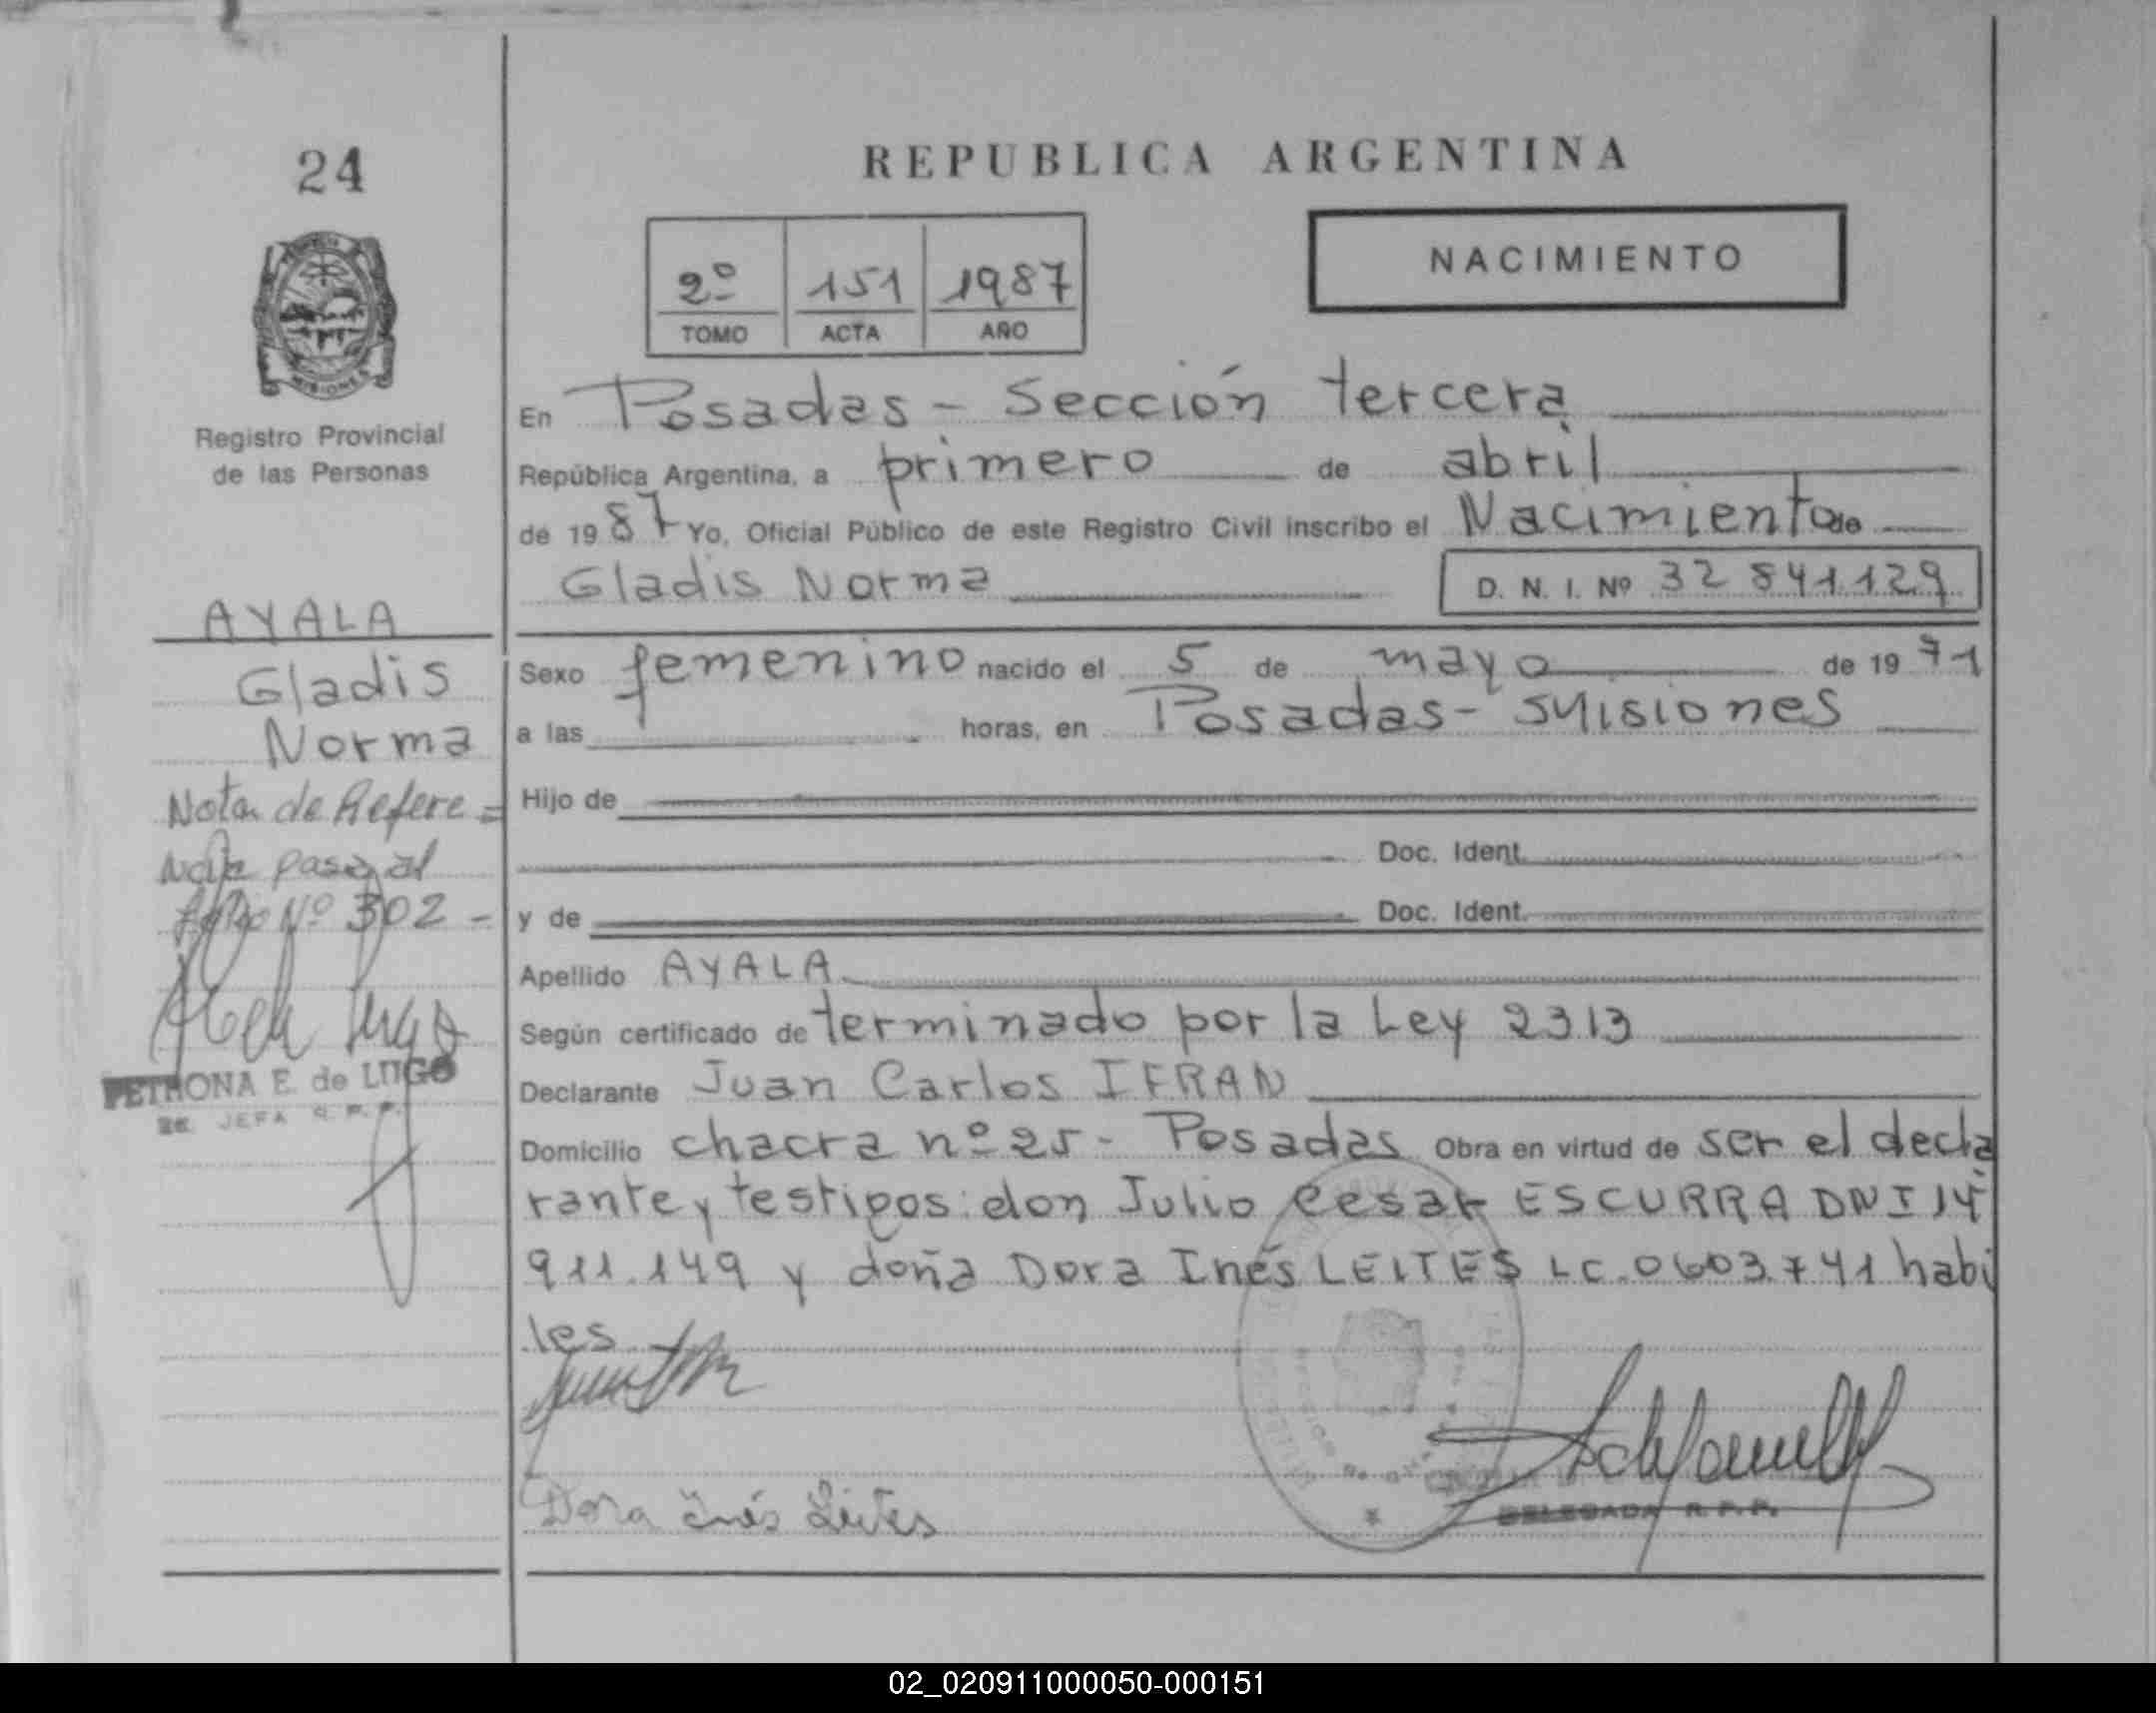 24
REPUBLICA ARGENTINA
2º 151 1987
TOMO ACTA AÑO
NACIMIENTO
MISIONES
Registro Provincial
de las Personas
En Posadas - Sección tercera
República Argentina, a primero de abril
de 1987 Yo, Oficial Público de este Registro Civil inscribo el Nacimiento de
Gladis Norma D. N. I. Nº 32 841.129
AYALA
Gladis
Norma
Nota de Refere=
Pasa al
Nº 302 -
PETRONA E. de LUGO
JEFA R. P. P.
Sexo femenino nacido el 5 de mayo de 1971
a las horas, en Posadas - Misiones
Hijo de
Doc. Ident.
y de Doc. Ident.
Apellido AYALA
Según certificado de terminado por la Ley 2313
Declarante Juan Carlos IFRAN
Domicilio chacra nº 25 - Posadas Obra en virtud de ser el decla
rante y testigos: don Julio Cesar ESCURRA DNI 14
911.149 y doña Dora Inés LEITES LC. 0603741 habi
les
Dora Inés Leites
DELEGADA R. P. P.
02_020911000050-000151